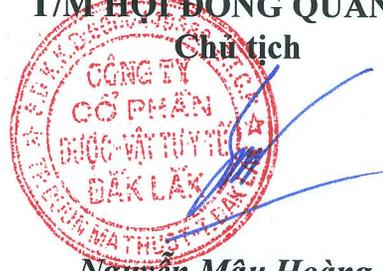 T/M HỘI ĐỒNG QUẢN
Chủ tịch
CÔNG TY
CỔ PHẦN
DƯỢC-VẬT TƯ Y TẾ
ĐẮK LẮK
Nguyễn Mậu Hoàng